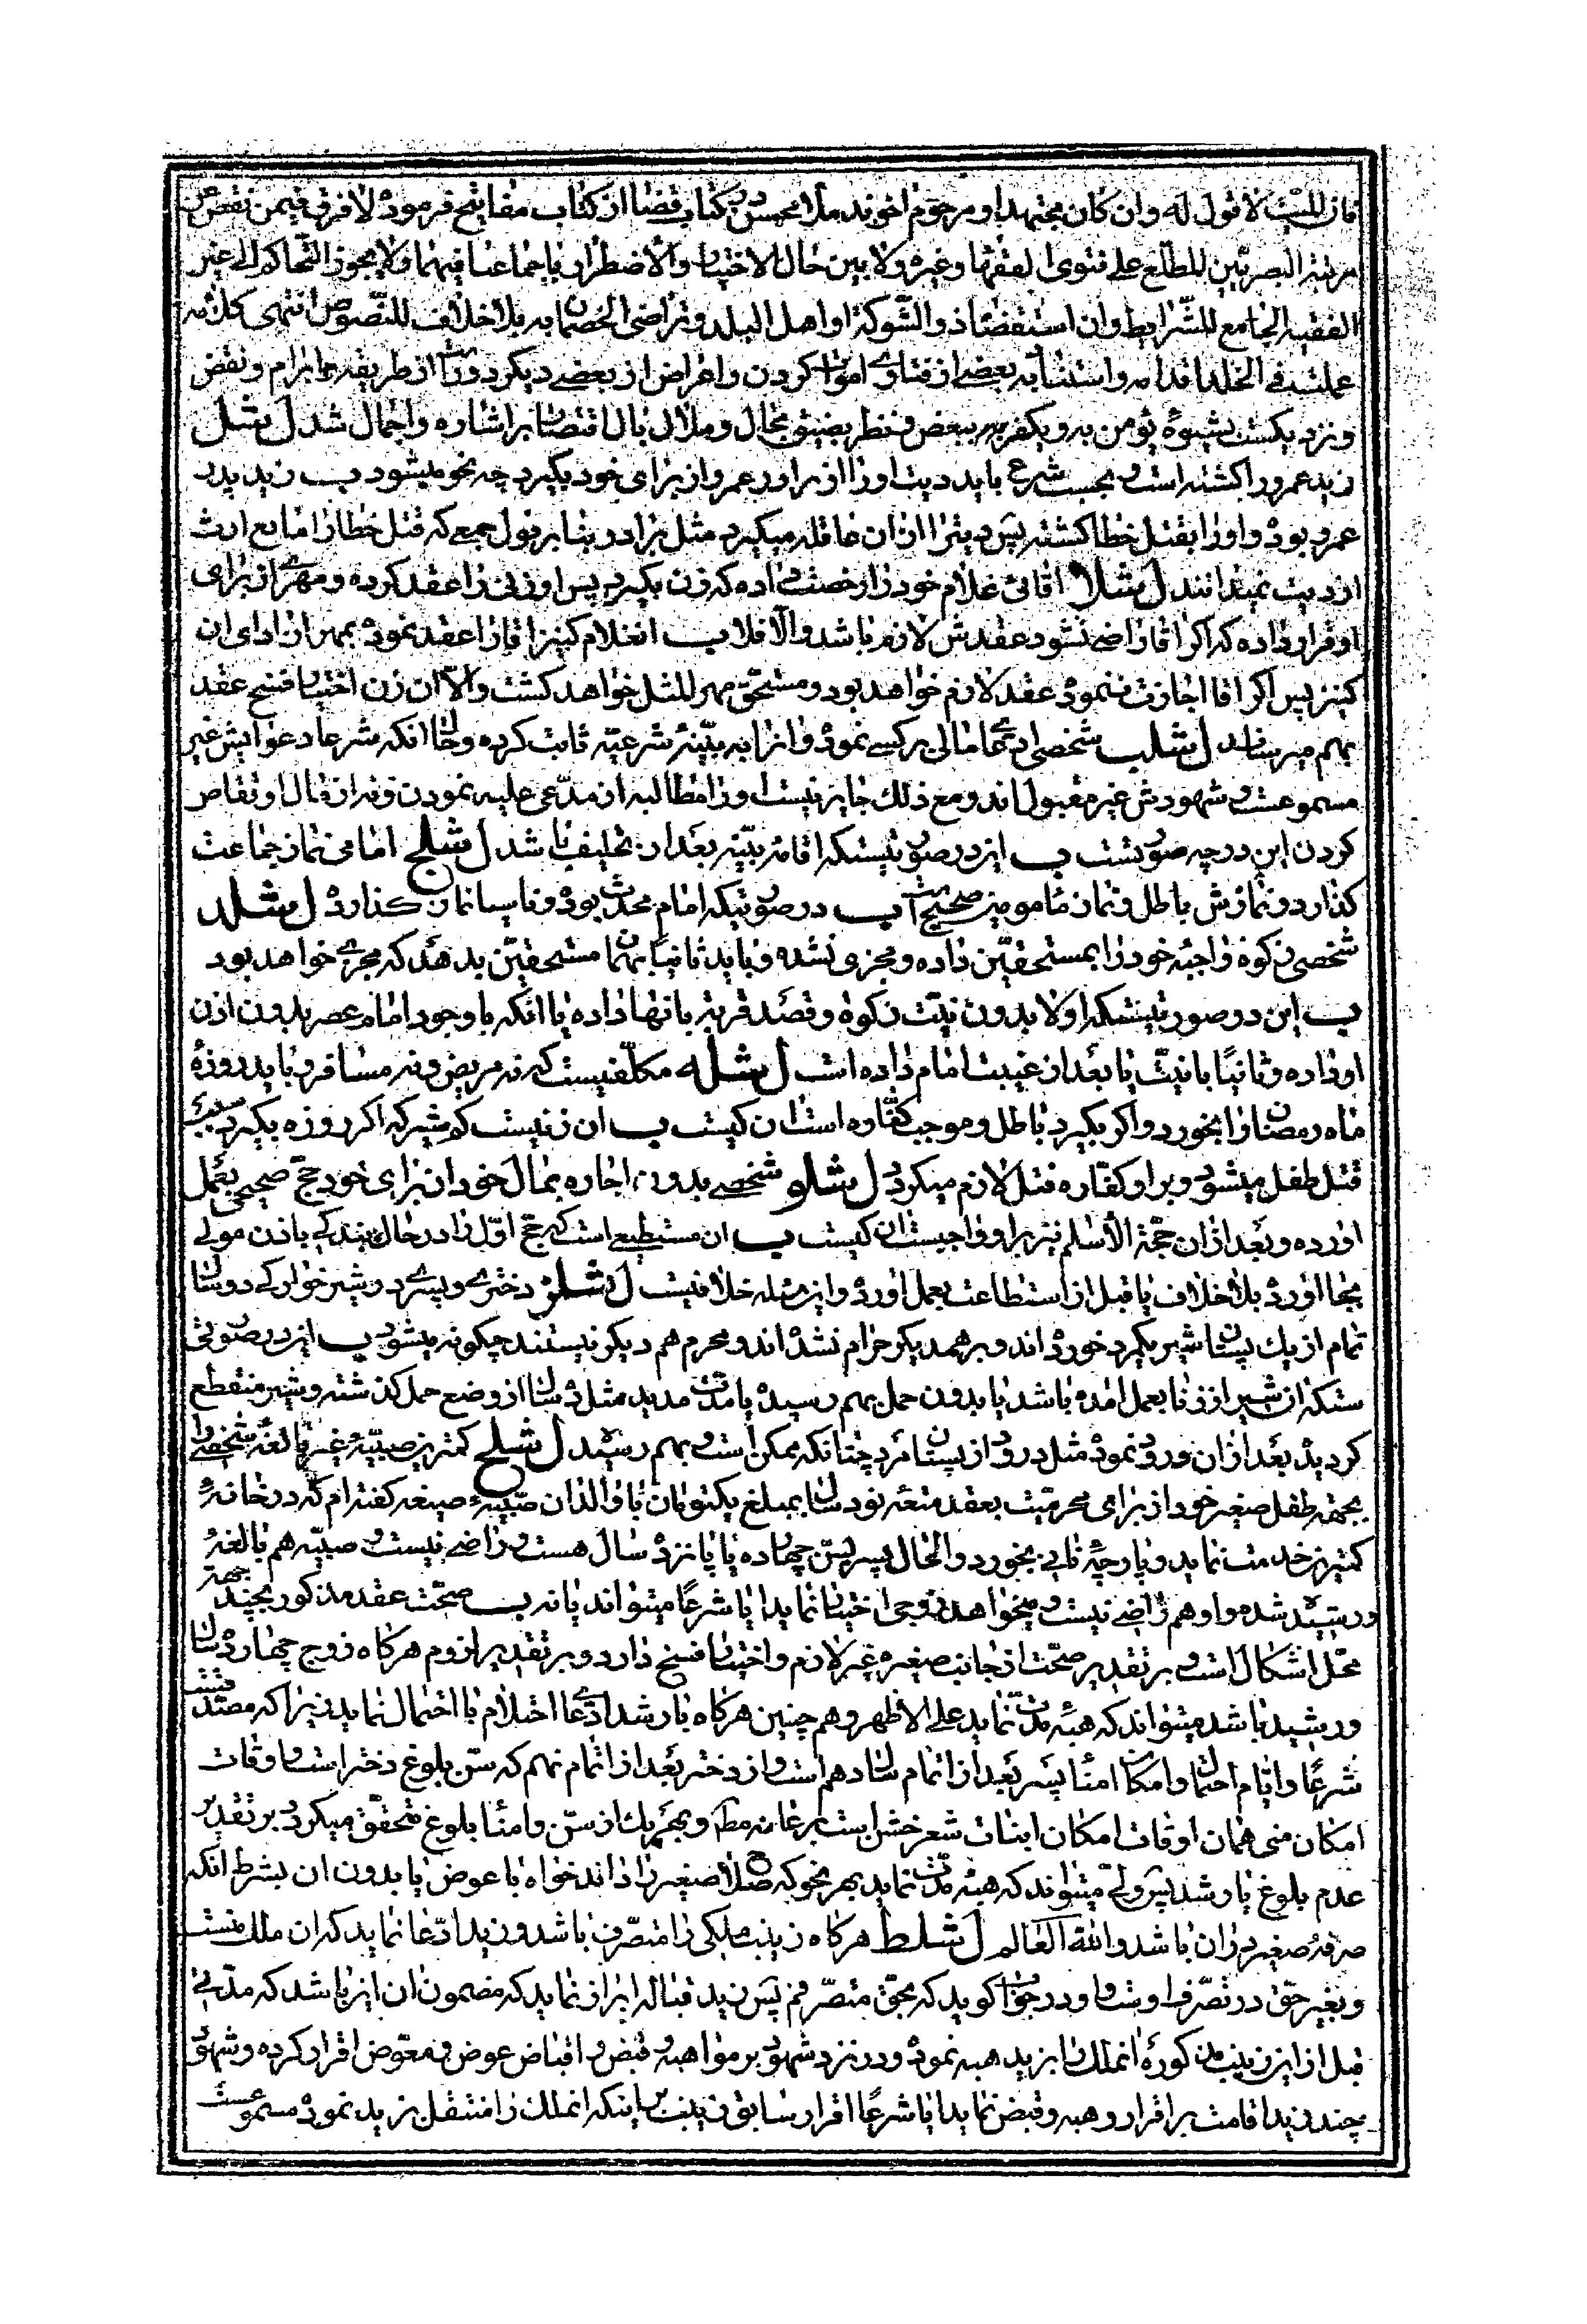 فان المیت لا قول له وان کان مجتهدا و مرحوم اخوند ملا محسن در کتاب قضا از کتاب مفاتیح فرموده لا فرق فیمن نقص عن
مرتبة البصریین المطلع علی فتوی الفقهاء وغیره ولا بین حال الاختیار والاضطرار باجماعنا فیهما ولا یجوز التحاکم الی غیر
الفقیه الجامع للشرایط وان استقضاه ذو الشوکة او اهل البلد و تراضی الخصمان به بلا خلاف للنصوص انتهی کلامه
عملت فی الخلد اقدامه و استثنا به بعضی از فتاوی اموات کردن و اعراض از بعضی دیگر دور از طریقه ابرام و نقض
و نزدیکست بشیوهٔ یؤمن به و یکفر ببعض و نظر بضیق مجال و ملال بال اقتصار بر اشاره و اجمال شد ل شل
زید عمرو را کشته است و بحسب شرع باید دیت او را از برادر عمرو از برای خود بگیرد چه نحو میشود ب زید پدر
عمرو بوده و او را بقتل خطا کشته پس دیتش را از ان عاقله میگیرد مثل برادر بنا بر قول جمعی که قتل خطا را مانع ارث
از دیت نمیدانند ل شلا اقائی غلام خود را رخصت داده که زن بگیرد پس او زنی را عقد کرده و مهری از برای
او قرار داده که اگر اقا راضی نشود عقدش لازم باشد و الّا فلا ب انغلام کنیز اقا را عقد نموده بمهر ازادی ان
کنیز پس اگر اقا اجازت ننموده عقد لازم خواهد بود و مستحق مهر المثل خواهد گشت و الّا ان زن اختیار فسخ عقد
بهم میرساند ل شلب شخصی ادعا مالی بر کسی نموده و انرا به بینهٔ شرعیه ثابت کرده و حال انکه شرعا دعوایش غیر
مسموعست و شهودش غیر مقبول اند و مع ذلک جایز نیست او را مطالبه از مدعی علیه نمودن و نه از مال او تقاص
کردن این در چه صورتست ب این در صورتیستکه اقامهٔ بینه بعد از تحلیف باشد ل شلج امامی نماز جماعت
گذارد و نمازش باطل و نماز مامومین صحیح است ب در صورتیکه امام محدث بوده و ناسیا نماز گذارده ل شلد
شخصی زکوة واجبهٔ خود را بمستحقین داده و مجزی نشده و باید ثانیا بهمان مستحقین بدهد که مجزی خواهد بود
ب این در صورتیستکه اولا بدون نیت زکوة و قصد قربة بانها داده یا انکه با وجود امام عصر بدون اذن
او داده و ثانیًا با نیّت یا بعد از غیبت امام داده است ل شله مکلّفیست که نه مریض و نه مسافر و باید روزهٔ
ماه رمضان را بخورد و اگر بگیرد باطل و موجب کفّاره است ان کیست ب ان زنیست کم شیر که اگر روزه بگیرد سبب
قتل طفل میشود و بر او کفّاره قتل لازم میگردد ل شلو شخصی بدون اجاره بمال خود از برای خود حجّ صحیحی بعمل
اورده و بعد از ان حجّة الاسلام نیز بر او واجبست ان کیست ب ان مستطیعی است که حجّ اوّل را در حال بندگی باذن مولی
بجا اورده بلا خلاف یا قبل از استطاعت بعمل اورده و این مسئله خلافیست ل شلز دختری و پسری در شیرخوارگی دو سال
تمام از یک پستان شیر یکمرد خورده اند و بر همدیگر حرام نشده اند و محرم هم دیگر نیستند چگونه میشود ب این در صورتی
ستکه ان شیر از زنا بعمل امده باشد یا بدون حمل بهم رسیده یا مدت مدید مثل ده سال از وضع حمل گذشته و شیر منقطع
گردیده بعد از ان ورود نموده مثل درود از پستان مرد چنانکه ممکن است و بهم رسیده ل شلح کمترین صبیّهٔ غیر بالغهٔ شخصی را
بجهة طفل صغیر خود از برای محرمیّت بعقد متعه نود سال بمبلغ یکتومان با والدان صبیّه صیغه گفته ام که در خانهٔ
کمترین خدمت نماید و پارچهٔ نانی بخورد و الحال پسر بسنّ چهارده یا پانزده سال هست و راضی نیست و صبیّه هم بالغهٔ
و رشیده شده و او هم راضی نیست و میخواهد زوجی اختیار نماید ایا شرعًا میتواند یا نه ب صحّت عقد مذکور بچند جهة
محلّ اشکال است و بر تقدیر صحّت از جانب صغیره غیر لازم و اختیار فسخ دارد و بر تقدیر لزوم هرگاه زوج چهارده سال
و رشید باشد میتواند که هبهٔ مدّت نماید علی الاظهر و هم چنین هرگاه با رشد ادّعا احتلام با احتمال نماید زیرا که مصدّقست
شرعًا و ایّام احتمال و امکان امنا پسر بعد از اتمام سال دهم است و از دختر بعد از اتمام نهم که سنّ بلوغ دختر است و اوقات
امکان منی همان اوقات امکان انبات شعر خشن است بر عانه مط و بهر یک از سنّ و امنا بلوغ متحقّق میگردد بر تقدیر
عدم بلوغ یا رشد پسر ولی میتواند که هبهٔ مدّت نماید بهر نحو که صلاح صغیر را داند خواه با عوض یا بدون ان بشرط انکه
صرفهٔ صغیر در ان باشد و الله العالم ل شلط هرگاه زینب ملکی را متصرّف باشد و زید ادّعا نماید که ان ملک منست
و بغیر حقّ در تصرّف اوست و او در جواب گوید که بحقّ متصرّفم پس زید قباله ابراز نماید که مضمون ان این باشد که مدّتی
قبل از این زینب مذکوره انملک را بزید هبه نموده و در نزد شهود بر مواهبه و قبض و اقباض عوض و معوّض اقرار کرده و شهود
چند زید اقامت بر اقرار و هبه و قبض نماید ایا شرعًا اقرار سابق زینب بر اینکه انملک را منتقل بزید نموده مسموعست